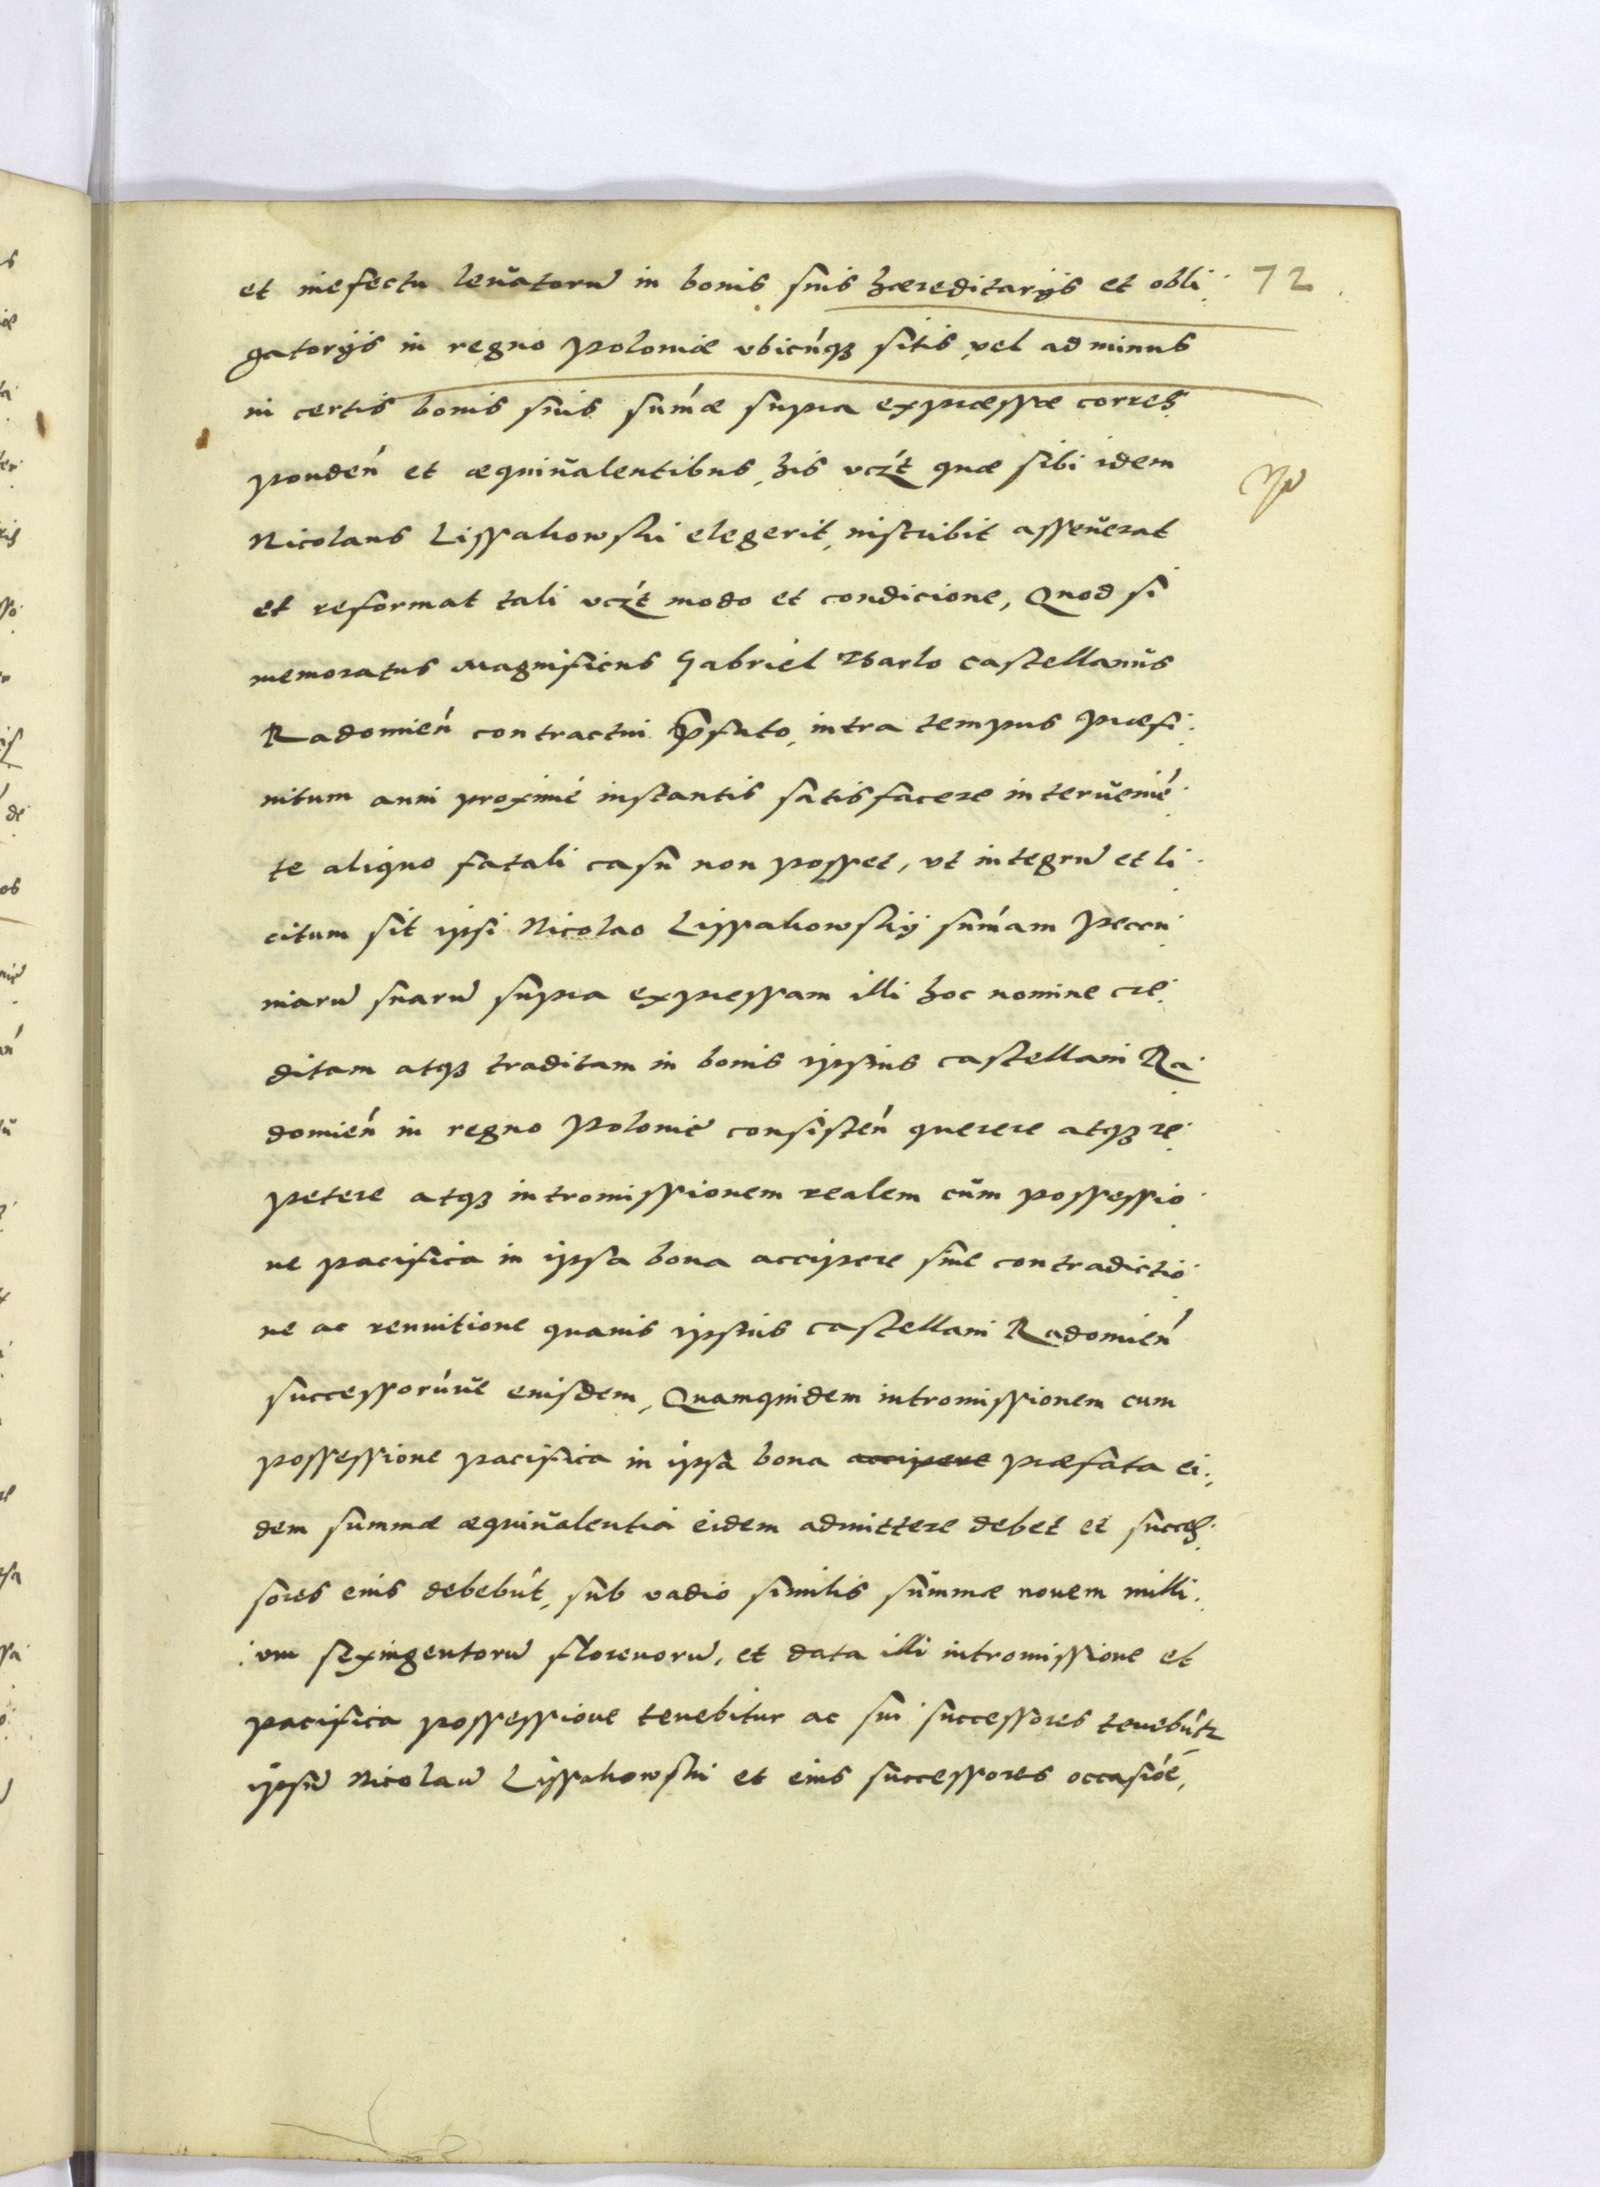 et inefectu leuatoru in bonis suis hæreditarijs et obli 72
gatorijs in regno Poloniæ vbicunqꝫ sitis vel adminus
in certis bonis suis sum̃æ supra expræssæ corres
ponden̄ et æquiualentibus, his vczt quæ sibi idem
Nicolaus Lissakowski elegerit, inscribit asseuerat
et reformat tali vczt modo et condicione, Quod si
memoratus Magnificus Gabriel Tharlo castellanus
Radomien̄ contractui p̄fato, intra tempus præfi
nitum anni proximé instantis satisfacere interuenié
te aliquo fatali casu non posset, vt integrũ et li
citum sit ipsi Nicolao Lissakowskij sum̃am pecu
niarũ suarũ supra expressam illi hoc nomine cre
ditam atqꝫ traditam in bonis ipsius castellani Ra
domien̄ in regno Poloniæ consisten̄ querere atqꝫ re
petere atqꝫ intromissionem realem cum possessio
ne pacifica in ipsa bona accipere sine contradictio
ne ac renuitione quauis ipsius castellani Radomien̄
successorúue eiusdem, Quamquidem intromissionem cum
possessione pacifica in ipsa bona accipere præfata ei
dem summæ æquiualentia eidem admittere debet et succes
sores eius debebũt, sub vadio similis summæ nouem milli
um sexingentorũ florenorũ, et data illi intromissione et
pacifica possessione tenebitur ac sui successores tenebũtr
ipsũ Nicolaũ Lissakowski et eius successores occasióē,